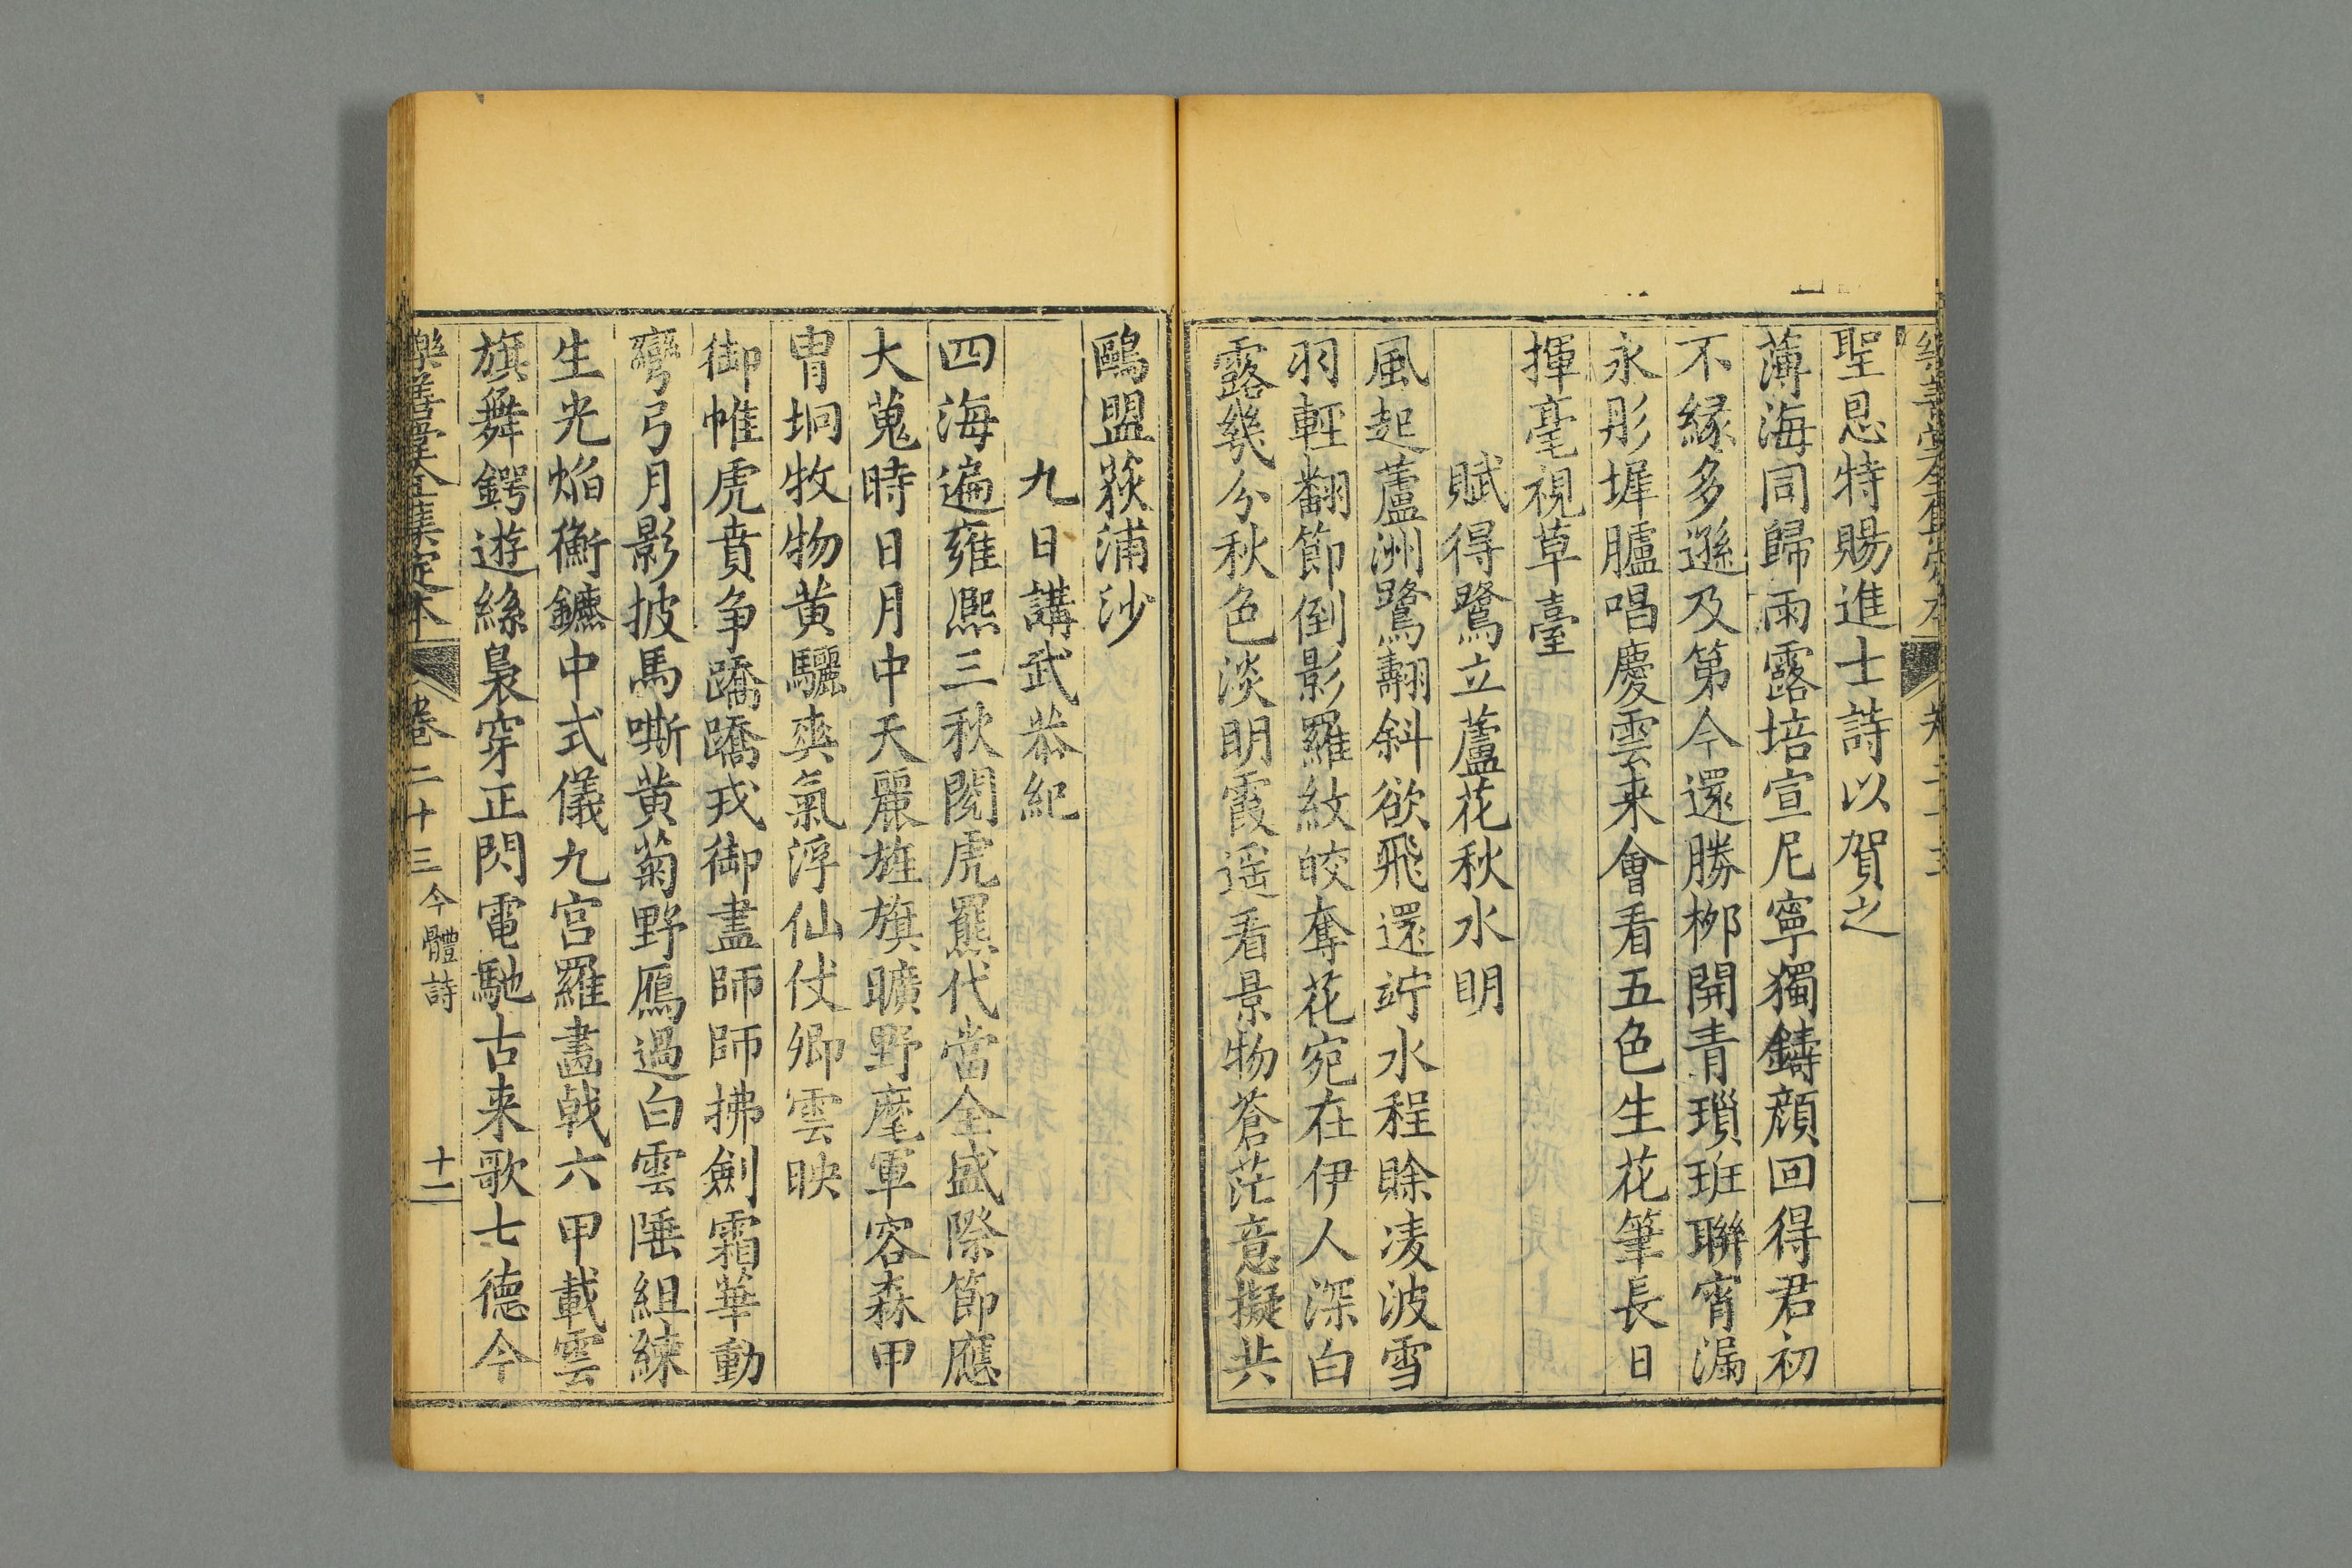 聖恩特賜進士詩以賀之
薄海同歸雨露培宣尼寧獨鑄顔回得君初
不縁多遜及第今還勝栁開青瑣班聯宵漏
永彤墀臚唱慶雲来會看五色生花筆長日
揮毫視草臺
賦得鷺立蘆花秋水明
風起蘆洲鷺翿斜欲飛還竚水程賖凌波雪
羽輊翻節倒影羅紋皎奪花宛在伊人深白
露幾分秋色淡明霞遥看景物蒼茫意擬共
鷗盟荻浦沙
九日講武恭紀
四海遍雍熈三秋閲虎羆代當全盛際節應
大蒐時日月中天麗旌旗曠野麾軍容森甲
冑坰牧物黄驪爽氣浮仙仗卿雲映
御帷虎賁争蹻蹻戎御盡師師拂劍霜華動
彎弓月影披馬嘶黄菊野鴈過白雲陲組練
生光焰衝鑣中式儀九宫羅畫戟六甲載雲
旗舞鍔遊絲裊穿正閃電馳古来歌七德今
樂善堂全集定本 卷二十三 今體詩 十二